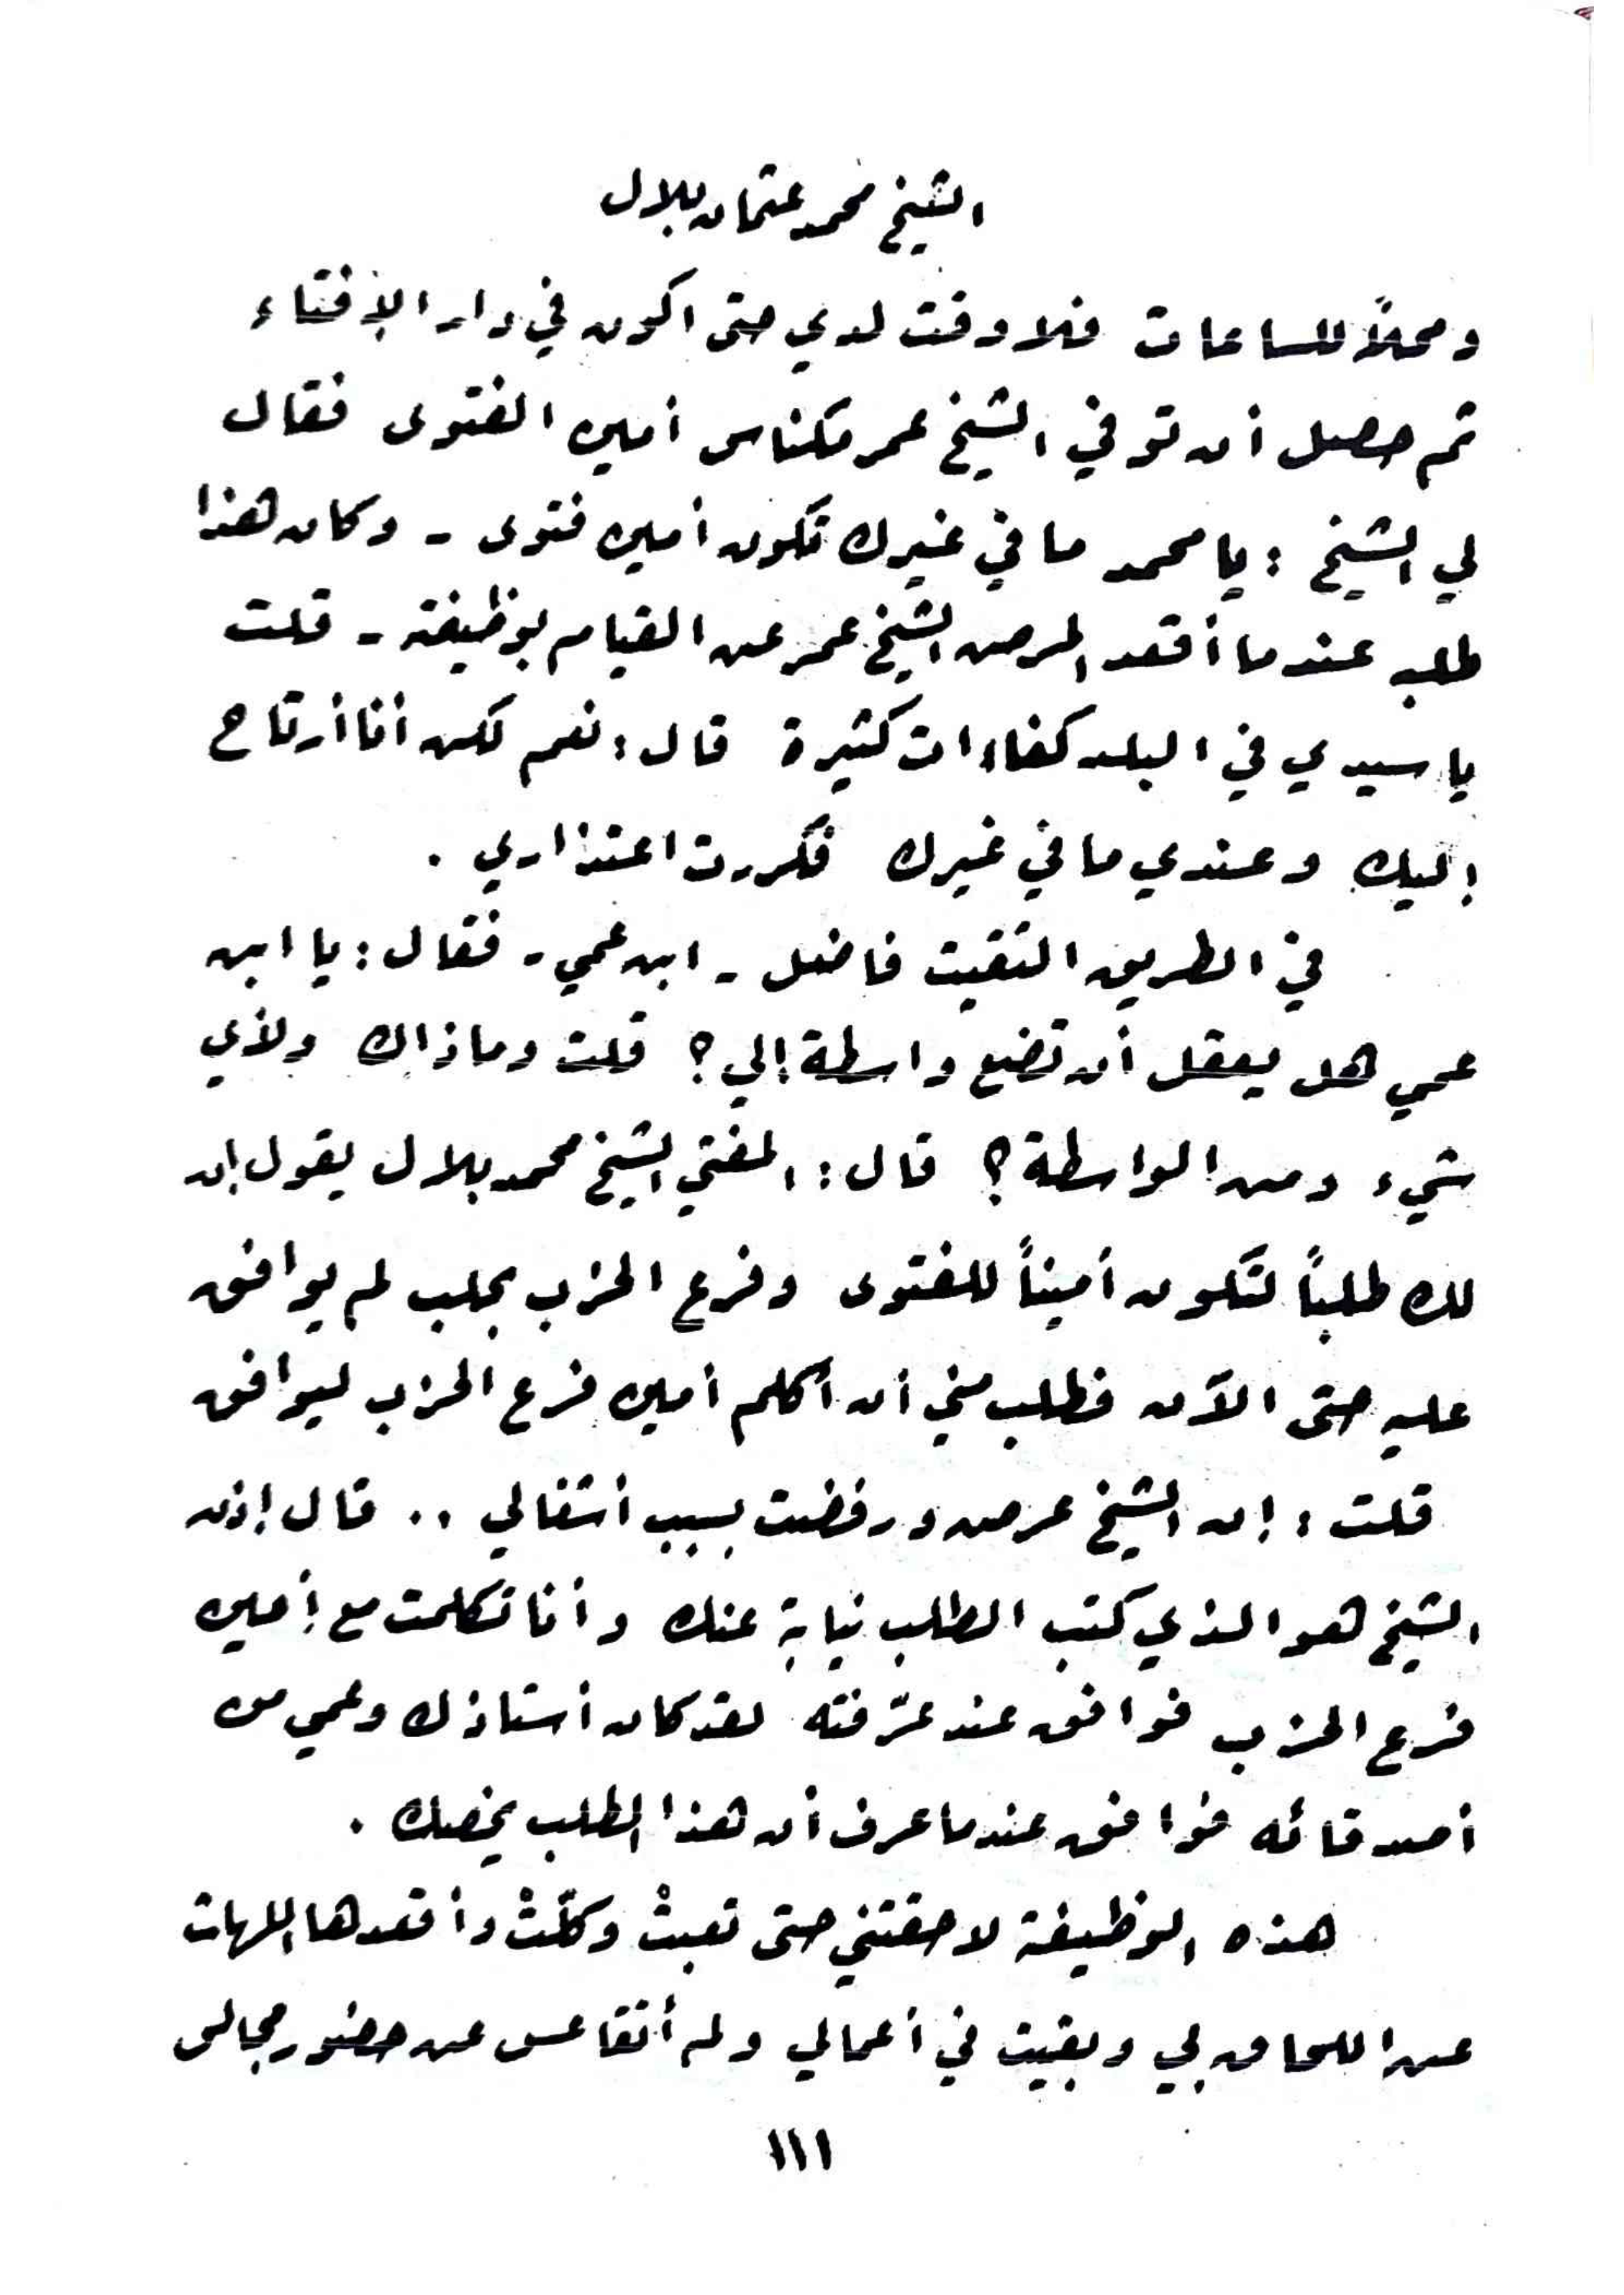 الشيخ محمد عثمان بلال
ومحلاً للساعات فلا وقت لدي حتى اكون في دار الإفتاء
ثم حصل أن توفي الشيخ عمر مكناس أمين الفتوى فقال
لي الشيخ : يا محمد ما في غيرك تكون أمين فتوى - وكان هذا
طلبه عندما أقعد المرض الشيخ عمر عن القيام بوظيفته - قلت
يا سيدي في البلد كفاءات كثيرة قال : نعم لكن أنا أرتاح
إليك وعندي ما في غيرك فكررت اعتذاري .
في الطريق التقيت فاضل - ابن عمي - فقال : يا ابن
عمي هل يعقل أن تضع واسطة إلي ؟ قلت وما ذاك ولأي
شيء ومن الواسطة ؟ قال : المفتي الشيخ محمد بلال يقول إن
لك طلباً لتكون أميناً للفتوى وفرع الحزب بحلب لم يوافق
عليه حتى الآن فطلب مني أن أكلم أمين فرع الحزب ليوافق
قلت : إن الشيخ عرض ورفضت بسبب أشغالي .. قال إذن
الشيخ هو الذي كتب الطلب نيابة عنك وأنا تكلمت مع أمين
فرع الحزب فوافق عند عرّفته لقد كان أستاذك وعمي من
أصدقائه فوافق عندما عرف أن هذا الطلب يخصك .
هذه الوظيفة لاحقتني حتى تعبتْ وكلّتْ وأقعدها اللهاث
عن اللحاق بي وبقيت في أعمالي ولم أتقاعس عن حضور مجالس
١١١